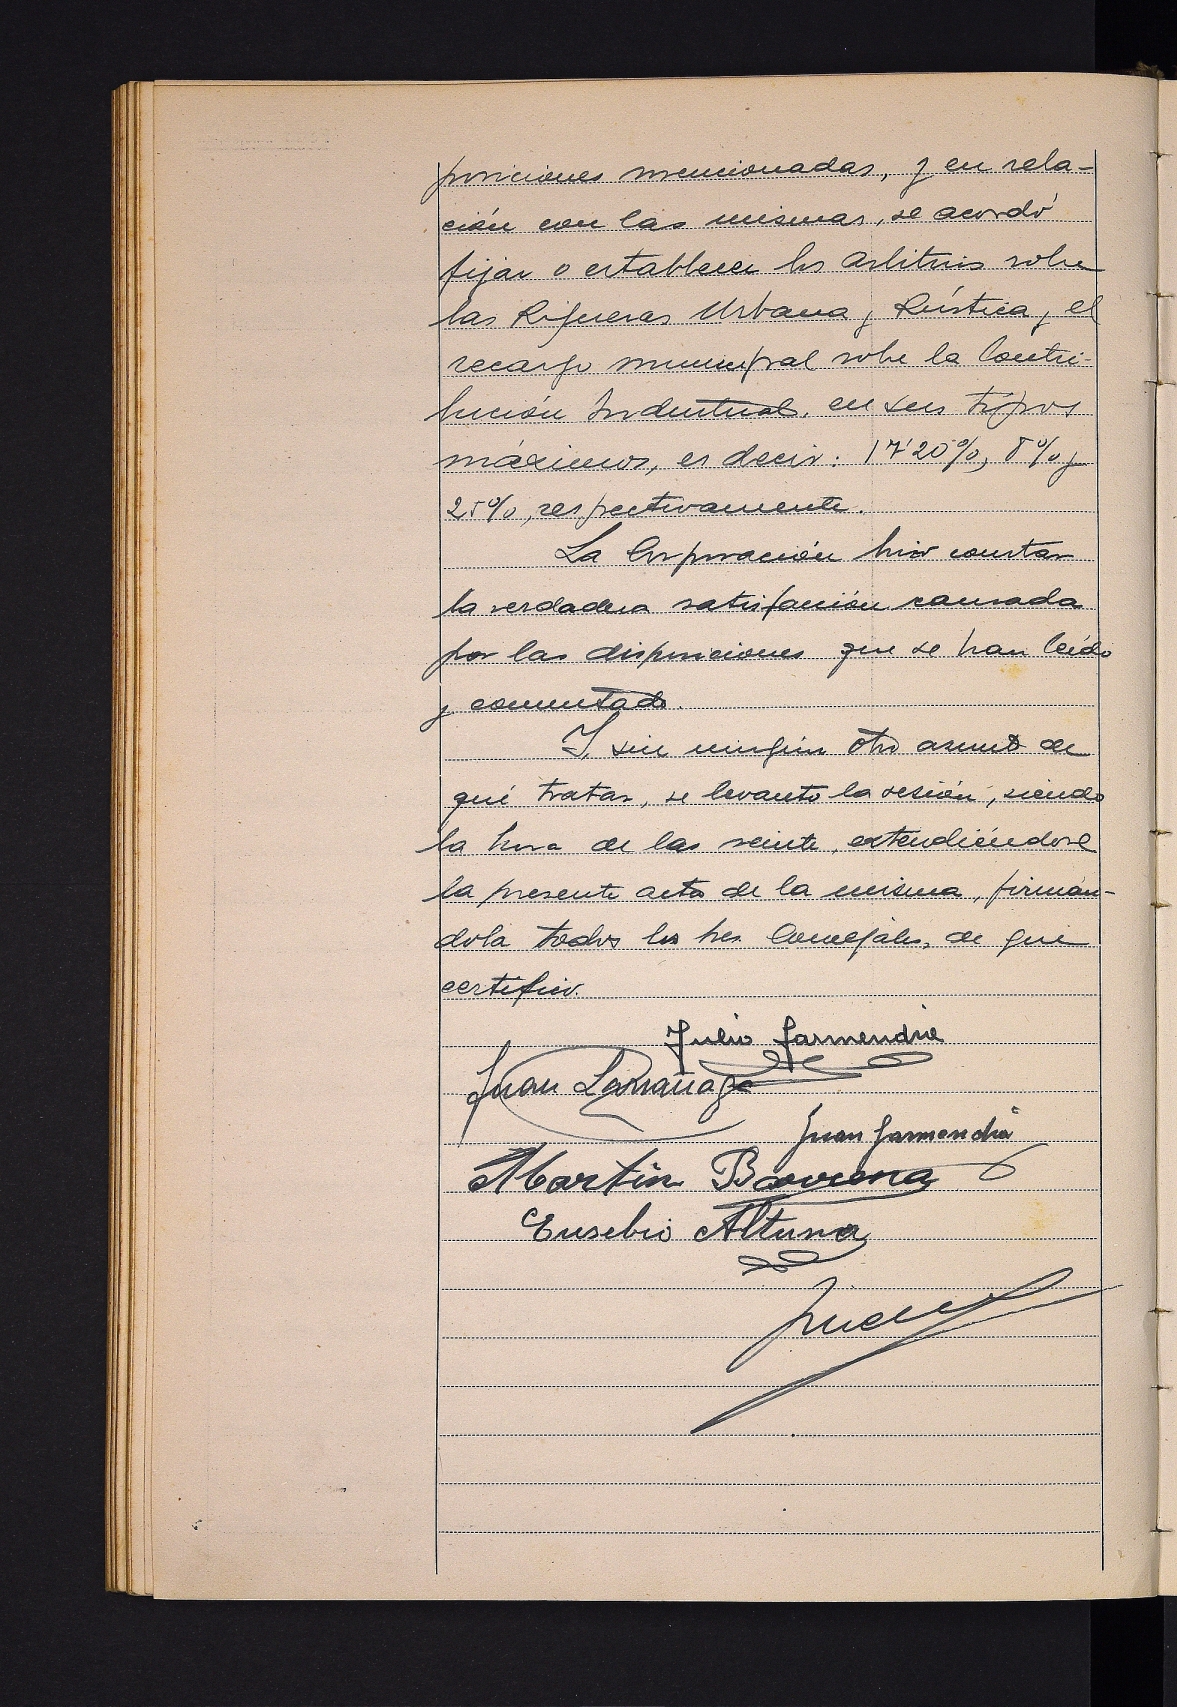 posiciones mencionadas, y en rela-
ción con las mismas, se acordó
fijar o establecer los arbitrios sobre
las Riqueras Urbana y Rústica y el
recargo municipal sobre la Contri-
bución Industrial, en sus tipos
máximos, es decir: 17'20%, 8% y
25%, respectivamente.
La Corporación hizo constar
la verdadera satisfacción causada
por las disposiciones que se han leído
y comentado.
Y, sin ningún otro asunto de
qué tratar, se levantó la sesión, siendo
la hora de las veinte, extendiéndose
la presente acta de la misma, firmán-
dola todos los Sres. Concejales, de que
certifico.
Julio Garmendia
Juan Larrañaga
Juan Garmendia
Martin Barrena
Eusebio Altuna